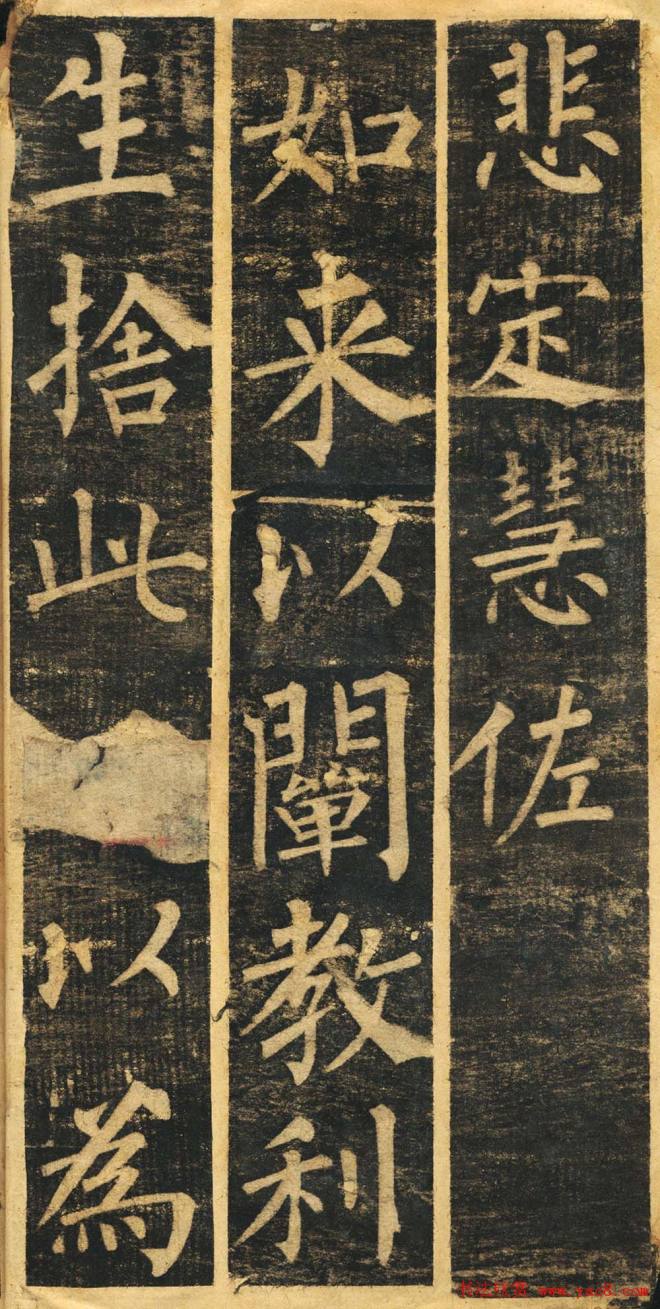 悲定慧佐
如来以闡教利
生捨此以為
書法欣賞 www.yac8.com